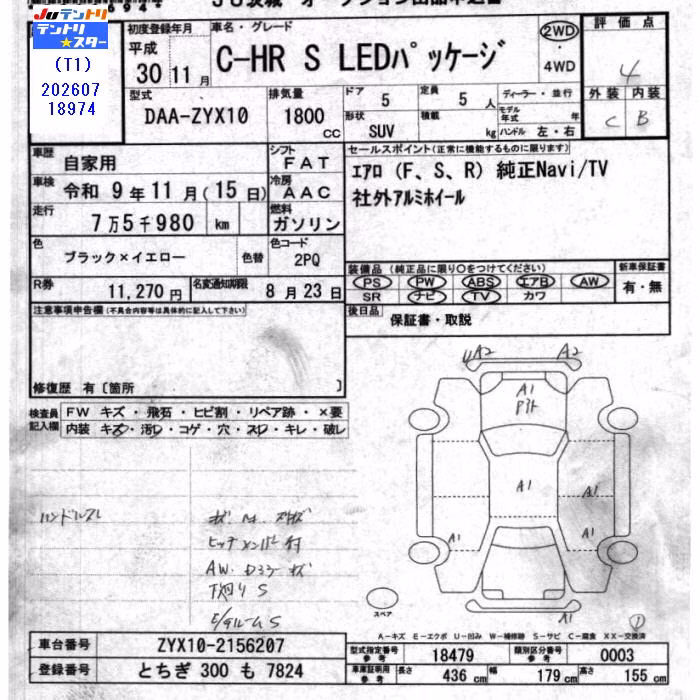 JUテントリ
テントリ★スター
(T1)
202607
18974
初度登録年月
平成
30 11 月
車名・グレード
C-HR S LEDパッケージ
2WD
4WD
評価点
4
外装 内装
C B
型式
DAA-ZYX10
排気量
1800 CC
ドア 5
定員 5 人
形状 SUV
積載 kg
ディーラー・並行
モデル年式 年式
ハンドル 左・右
車歴 自家用
シフト FAT
車検 令和 9 年 11 月 ( 15 日)
冷房 AAC
走行 7 万 5 千 980 km
燃料 ガソリン
色 ブラック×イエロー 色替
色コード 2PQ
R券 11,270 円
名変通知期限 8 月 23 日
セールスポイント(正常に機能するものに限ります)
エアロ (F、S、R) 純正Navi/TV
社外アルミホイール
装備品 (純正品に限り〇をつけてください)
PS PW ABS エアB AW
SR ナビ TV カワ
新車保証書
有・無
後日品 保証書・取説
注意事項申告欄 (不具合内容等は具体的に記入して下さい)
修復歴 有 [箇所 ]
検査員記入欄
FW キズ・飛石・ヒビ割・リペア跡・×要
内装 キズ・汚れ・コゲ・穴・スレ・キレ・破レ
ハンドルスレ
AW. キズ
下回り S
A2 A2
A1
A1
A1
A1
A1
A1
A1
スペア
A-キズ E-エクボ U-凹み W-補修跡 S-サビ C-腐食 XX-交換済
車台番号 ZYX10-2156207
登録番号 とちぎ 300 も 7824
型式指定番号 参考 18479
類別区分番号 参考 0003
車庫証明用 参考 長さ 436 cm 幅 179 cm 高さ 155 cm